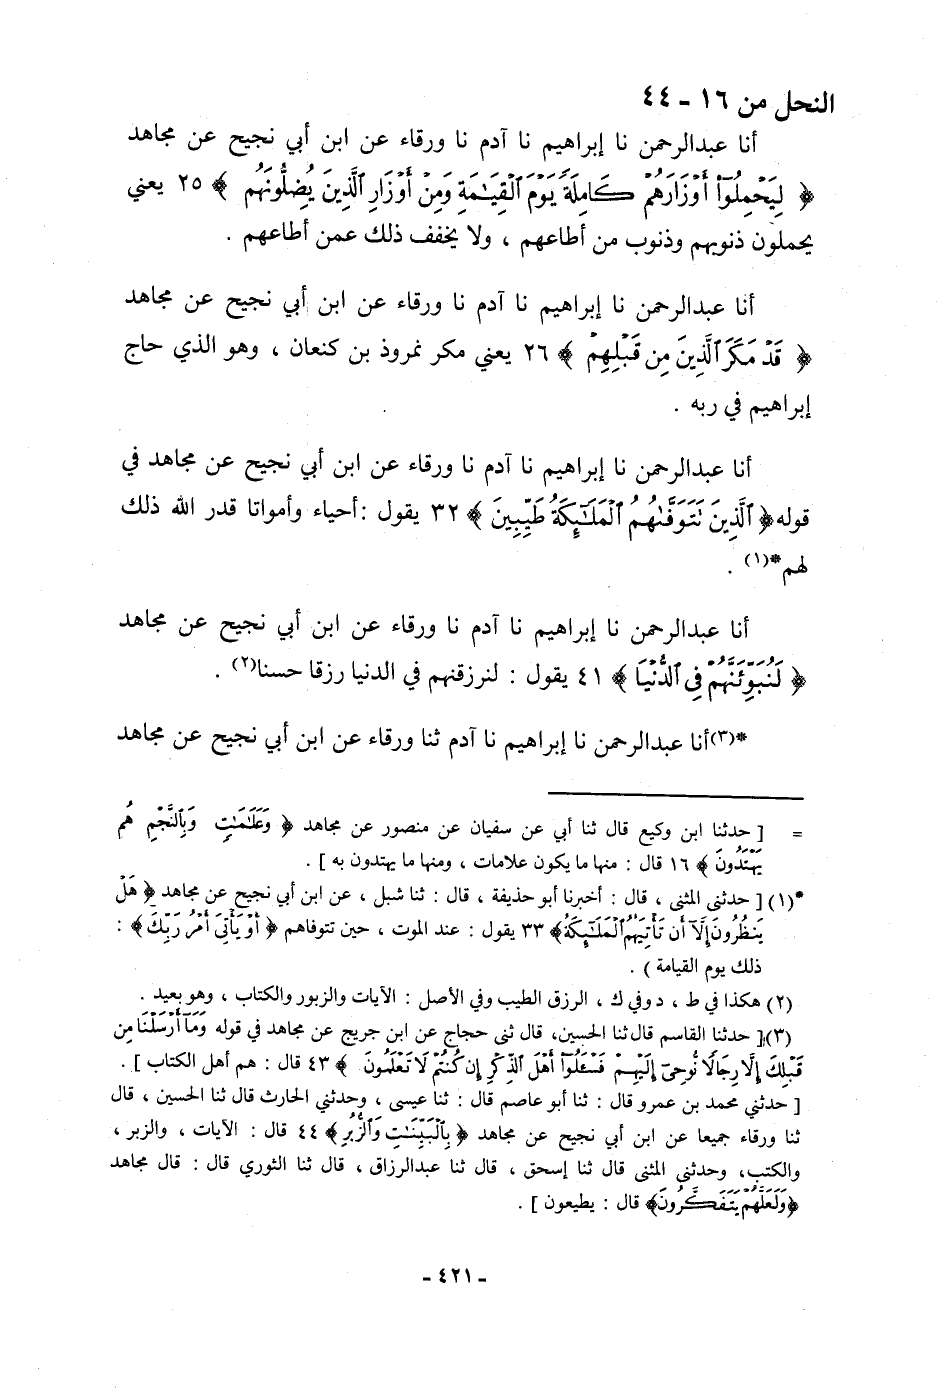 النحل من ١٦ - ٤٤
أنا عبدالرحمن نا إبراهيم نا آدم نا ورقاء عن ابن أبي نجيح عن مجاهد
﴿ لِيَحْمِلُوٓا۟ أَوْزَارَهُمْ كَامِلَةً يَوْمَ ٱلْقِيَٰمَةِ وَمِنْ أَوْزَارِ ٱلَّذِينَ يُضِلُّونَهُم ﴾ ٢٥ يعني
يحملون ذنوبهم وذنوب من أطاعهم ، ولا يخفف ذلك عمن أطاعهم .
أنا عبدالرحمن نا إبراهيم نا آدم نا ورقاء عن ابن أبي نجيح عن مجاهد
﴿ قَدْ مَكَرَ ٱلَّذِينَ مِن قَبْلِهِمْ ﴾ ٢٦ يعني مكر نمروذ بن كنعان ، وهو الذي حاج
إبراهيم في ربه .
أنا عبدالرحمن نا إبراهيم نا آدم نا ورقاء عن ابن أبي نجيح عن مجاهد في
قوله ﴿ ٱلَّذِينَ تَتَوَفَّىٰهُمُ ٱلْمَلَٰٓئِكَةُ طَيِّبِينَ ﴾ ٣٢ يقول : أحياء وأمواتا قدر الله ذلك
لهم *(١) .
أنا عبدالرحمن نا إبراهيم نا آدم نا ورقاء عن ابن أبي نجيح عن مجاهد
﴿ لَنُبَوِّئَنَّهُمْ فِى ٱلدُّنْيَا ﴾ ٤١ يقول : لنرزقنهم في الدنيا رزقا حسنا(٢) .
*(٣) أنا عبدالرحمن نا إبراهيم نا آدم ثنا ورقاء عن ابن أبي نجيح عن مجاهد
= [ حدثنا ابن وكيع قال ثنا أبي عن سفيان عن منصور عن مجاهد ﴿ وَعَلَٰمَٰتٍ وَبِٱلنَّجْمِ هُمْ
يَهْتَدُونَ ﴾ ١٦ قال : منها ما يكون علامات ، ومنها ما يهتدون به ] .
*(١) [ حدثني المثنى ، قال : أخبرنا أبو حذيفة ، قال : ثنا شبل ، عن ابن أبي نجيح عن مجاهد ﴿ هَلْ
يَنظُرُونَ إِلَّآ أَن تَأْتِيَهُمُ ٱلْمَلَٰٓئِكَةُ ﴾ ٣٣ يقول : عند الموت ، حين تتوفاهم ﴿ أَوْ يَأْتِىَ أَمْرُ رَبِّكَ ﴾ :
ذلك يوم القيامة ) .
(٢) هكذا في ط ، د وفي ك ، الرزق الطيب وفي الأصل : الآيات والزبور والكتاب ، وهو بعيد .
(٣) [ حدثنا القاسم قال ثنا الحسين، قال ثنى حجاج عن ابن جريج عن مجاهد في قوله وَمَآ أَرْسَلْنَا مِن
قَبْلِكَ إِلَّا رِجَالًا نُّوحِىٓ إِلَيْهِمْ فَسْـَٔلُوٓا۟ أَهْلَ ٱلذِّكْرِ إِن كُنتُمْ لَا تَعْلَمُونَ ﴾ ٤٣ قال : هم أهل الكتاب ] .
[ حدثني محمد بن عمرو قال : ثنا أبو عاصم قال : ثنا عيسى ، وحدثني الحارث قال ثنا الحسين ، قال
ثنا ورقاء جميعا عن ابن أبي نجيح عن مجاهد ﴿ بِٱلْبَيِّنَٰتِ وَٱلزُّبُرِ ﴾ ٤٤ قال : الآيات ، والزبر ،
والكتب، وحدثني المثنى قال ثنا إسحق ، قال ثنا عبدالرزاق ، قال ثنا الثوري قال : قال مجاهد
﴿ وَلَعَلَّهُمْ يَتَفَكَّرُونَ ﴾ قال : يطيعون ] .
- ٤٢١ -